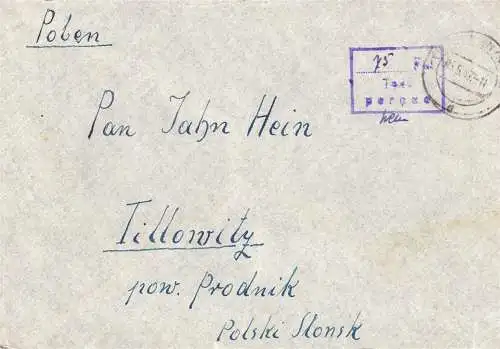 Polen
75 Pf.
Taxe
perçue
Pan Jahn Hein
Tillowitz
pow. Prodnik
Polski Slonsk